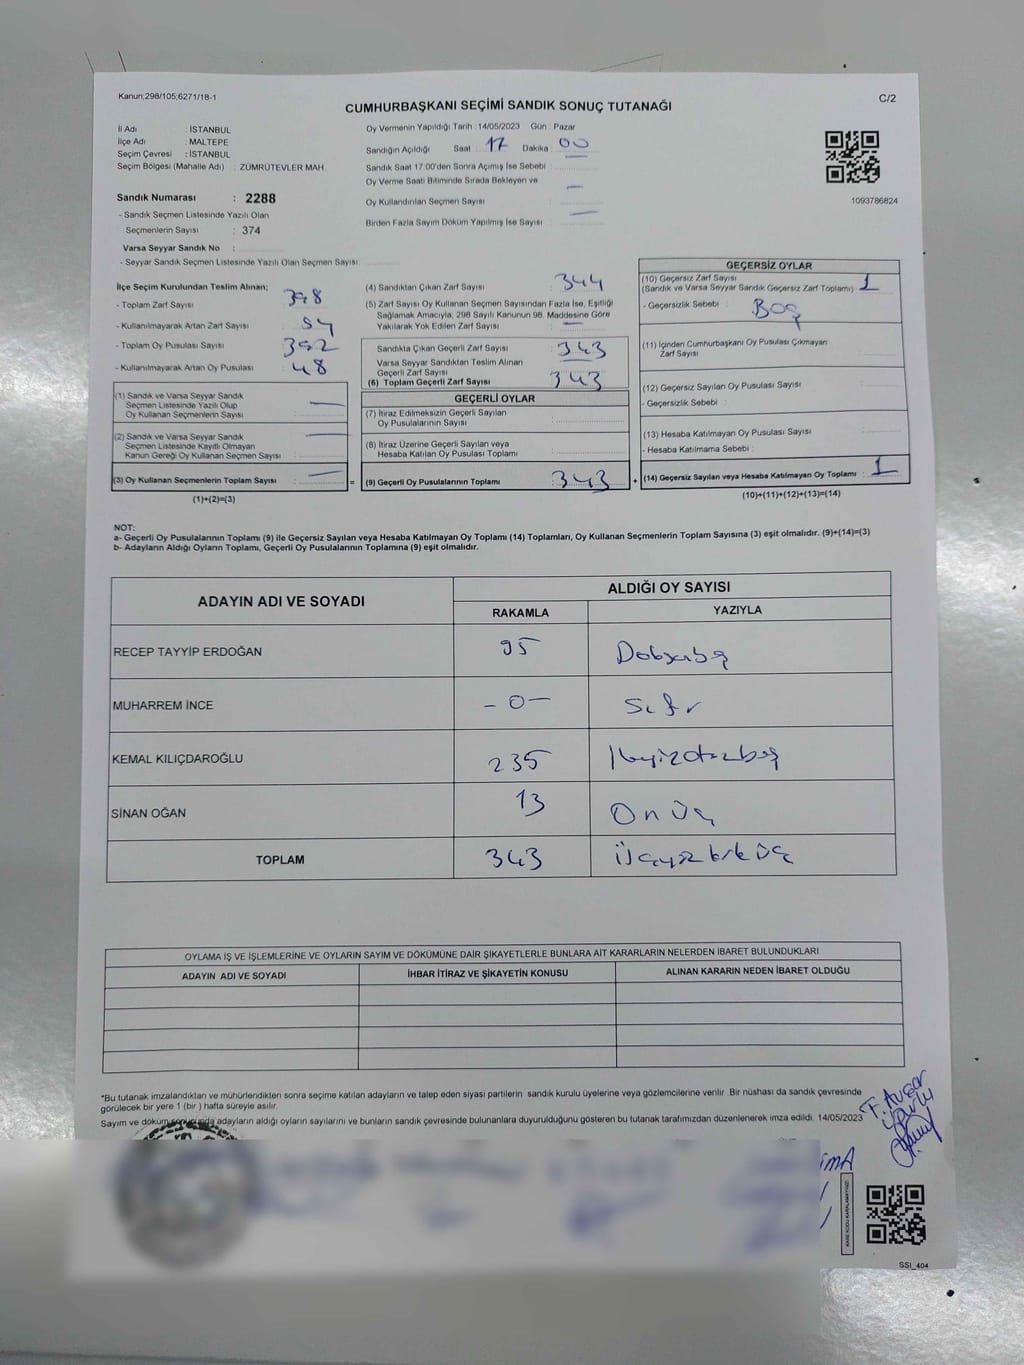 Kanun;298/105;6271/18-1
CUMHURBAŞKANI SEÇİMİ SANDIK SONUÇ TUTANAĞI
C/2
İl Adı : İSTANBUL
İlçe Adı : MALTEPE
Seçim Çevresi : İSTANBUL
Seçim Bölgesi (Mahalle Adı) : ZÜMRÜTEVLER MAH.
Sandık Numarası : 2288
- Sandık Seçmen Listesinde Yazılı Olan
Seçmenlerin Sayısı : 374
Varsa Seyyar Sandık No :
- Seyyar Sandık Seçmen Listesinde Yazılı Olan Seçmen Sayısı:
Oy Vermenin Yapıldığı Tarih : 14/05/2023 Gün : Pazar
Sandığın Açıldığı Saat : 17 Dakika : 00
Sandık Saat 17:00'den Sonra Açımış İse Sebebi :
Oy Verme Saati Bitiminde Sırada Bekleyen ve
Oy Kullandırılan Seçmen Sayısı : —
Birden Fazla Sayım Döküm Yapılmış İse Sayısı : —
1093786824
İlçe Seçim Kurulundan Teslim Alınan;
- Toplam Zarf Sayısı : 398
- Kullanılmayarak Artan Zarf Sayısı : 54
- Toplam Oy Pusulası Sayısı : 392
- Kullanılmayarak Artan Oy Pusulası : 48
(1) Sandık ve Varsa Seyyar Sandık
Seçmen Listesinde Yazılı Olup
Oy Kullanan Seçmenlerin Sayısı : —
(2) Sandık ve Varsa Seyyar Sandık
Seçmen Listesinde Kayıtlı Olmayan
Kanun Gereği Oy Kullanan Seçmen Sayısı : —
(3) Oy Kullanan Seçmenlerin Toplam Sayısı : —
(1)+(2)=(3)
(4) Sandıktan Çıkan Zarf Sayısı : 344
(5) Zarf Sayısı Oy Kullanan Seçmen Sayısından Fazla İse, Eşitliği
Sağlamak Amacıyla; 298 Sayılı Kanunun 98. Maddesine Göre
Yakılarak Yok Edilen Zarf Sayısı : —
Sandıkta Çıkan Geçerli Zarf Sayısı : 343
Varsa Seyyar Sandıktan Teslim Alınan
Geçerli Zarf Sayısı
(6) Toplam Geçerli Zarf Sayısı : 343
GEÇERLİ OYLAR
(7) İtiraz Edilmeksizin Geçerli Sayılan
Oy Pusulalarının Sayısı :
(8) İtiraz Üzerine Geçerli Sayılan veya
Hesaba Katılan Oy Pusulası Toplamı :
= (9) Geçerli Oy Pusulalarının Toplamı : 343 +
GEÇERSİZ OYLAR
(10) Geçersiz Zarf Sayısı
(Sandık ve Varsa Seyyar Sandık Geçersiz Zarf Toplamı) : 1
- Geçersizlik Sebebi : Boş
(11) İçinden Cumhurbaşkanı Oy Pusulası Çıkmayan
Zarf Sayısı :
(12) Geçersiz Sayılan Oy Pusulası Sayısı :
- Geçersizlik Sebebi :
(13) Hesaba Katılmayan Oy Pusulası Sayısı :
- Hesaba Katılmama Sebebi :
(14) Geçersiz Sayılan veya Hesaba Katılmayan Oy Toplamı : 1
(10)+(11)+(12)+(13)=(14)
NOT:
a- Geçerli Oy Pusulası Toplamı (9) ile Geçersiz Sayılan veya Hesaba Katılmayan Oy Toplamı (14) Toplamları, Oy Kullanan Seçmenlerin Toplam Sayısına (3) eşit olmalıdır. (9)+(14)=(3)
b- Adayların Aldığı Oyların Toplamı, Geçerli Oy Pusulalarının Toplamına (9) eşit olmalıdır.
ADAYIN ADI VE SOYADI
ALDIĞI OY SAYISI
RAKAMLA YAZIYLA
RECEP TAYYİP ERDOĞAN 95 Doksanbeş
MUHARREM İNCE - 0 - Sıfır
KEMAL KILIÇDAROĞLU 235 İkiyüzotuzbeş
SİNAN OĞAN 13 On üç
TOPLAM 343 Üçyüz kırk üç
OYLAMA İŞ VE İŞLEMLERİNE VE OYLARIN SAYIM VE DÖKÜMÜNE DAİR ŞİKAYETLERLE BUNLARA AİT KARARLARIN NELERDEN İBARET BULUNDUKLARI
ADAYIN ADI VE SOYADI İHBAR İTİRAZ VE ŞİKAYETİN KONUSU ALINAN KARARIN NEDEN İBARET OLDUĞU
*Bu tutanak imzalandıktan ve mühürlendikten sonra seçime katılan adayların ve talep eden siyasi partilerin sandık kurulu üyelerine veya gözlemcilerine verilir. Bir nüshası da sandık çevresinde
görülecek bir yere 1 (bir) hafta süreyle asılır.
Sayım ve döküm sonucunda adayların aldığı oyların sayılarını ve bunların sandık çevresinde bulunanlara duyurulduğunu gösteren bu tutanak tarafımızdan düzenlenerek imza edildi. 14/05/2023
SSI_404